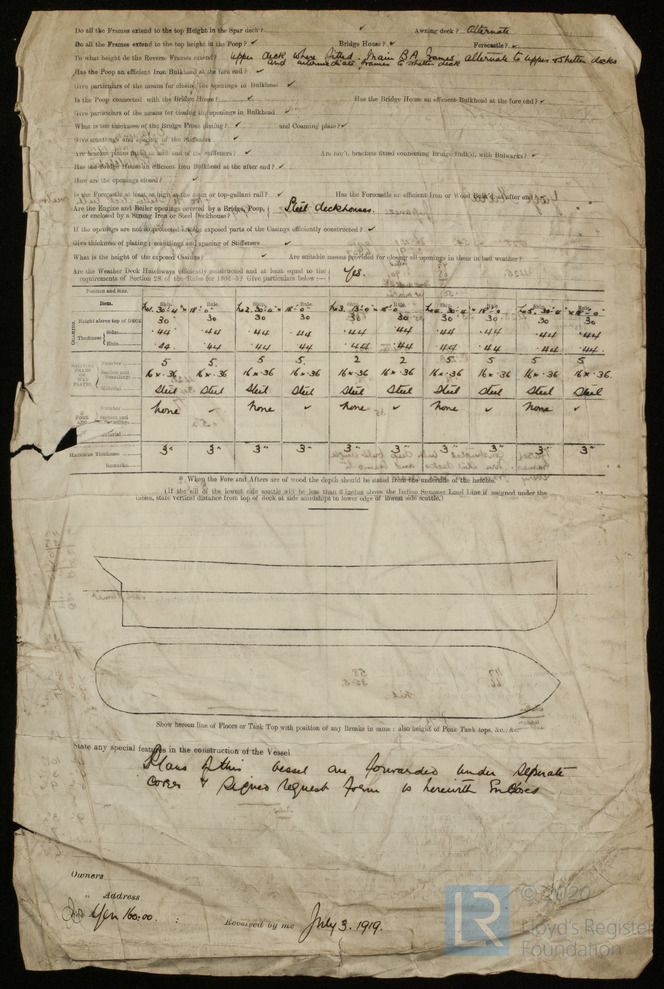 Do all the Frames extend to the top Height in the Spar deck? ✓ Awning deck? Alternate
Do all the Frames extend to the top height in the Poop? ✓ Bridge House? ✓ Forecastle? ✓
To what height do the Reverse Frames extend? upper deck where fitted. Main B.A. frames alternate to upper & shelter decks
and intermediate frames to shelter deck
Has the Poop an efficient Iron Bulkhead at the fore end? ✓
Give particulars of the means for closing the openings in Bulkhead ✓
Is the Poop connected with the Bridge House? ✓ Has the Bridge House an efficient Bulkhead at the fore end? ✓
Give particulars of the means for closing the openings in Bulkhead ✓
What is the thickness of the Bridge Front plating? ✓ and Coaming plate? ✓
Give scantlings and spacing of the Stiffeners ✓
Are bracket plates fitted at each end of the stiffeners? ✓ Are hor'l. brackets fitted connecting Bridge Bulk'd, with Bulwarks? ✓
Has the Bridge House an efficient Iron Bulkhead at the after end? ✓
How are the openings closed? ✓
Is the Forecastle at least as high as the main or top-gallant rail? ✓ Has the Forecastle an efficient Iron or Wood Bulkhead at after end?
Are the Engine and Boiler openings covered by a Bridge, Poop, or enclosed by a Strong Iron or Steel Deckhouse? Steel deckhouses.
If the openings are not so protected are the exposed parts of the Casings efficiently constructed? ✓
Give thickness of plating; scantlings and spacing of Stiffeners ✓
What is the height of the exposed Casings? ✓ Are suitable means provided for closing all openings in them in bad weather? ✓
Are the Weather Deck Hatchways efficiently constructed and at least equal to the
requirements of Section 28 of the Rules for Give particulars below :— Yes.
Position and Size.
Item. No1. 30'-4" × 18'-0" No2. 30'-4" × 18'-0" No3. 13'-0" No4. 30'-4" × 18'-0" No5. 30'-4" × 18'-0"
COAMING Height above top of DECK 30" 30 30 30 30 30 30 30
Thickness Sides .44 .44 .44 .44 .44 .44 .44 .44 .44 .44
Ends .44 .44 .44 .44 .44 .44 .44 .44 .44 .44
Number 5 5 5 5 2 2 5 5 5 5
16 × .36 16 × .36 16 × .36 16 × .36 16 × .36 16 × .36 16 × .36 16 × .36 16 × .36 16 × .36
Material Steel Steel Steel Steel Steel Steel Steel Steel Steel Steel
FORE AND Number None ✓ None ✓ None ✓ None ✓ None ✓
Material
HATCHES Thickness 3" 3" 3" 3" 3" 3" 3" 3" 3" 3"
Remarks.
* When the Fore and Afters are of wood the depth should be stated from the underside of the hatches.
(If the sill of the lowest side scuttle will be less than 6 inches above the Indian Summer Load Line if assigned under the
tables, state vertical distance from top of deck at side amidships to lower edge of lowest side scuttle.)
Show hereon line of Floors or Tank Top with position of any Breaks in same : also height of Peak Tank tops, &c., &c.
State any special features in the construction of the Vessel
Plans of this vessel are forwarded under separate
cover & signed request form is herewith enclosed
Owners
" Address
Yen 160.00. Received by me July 3. 1919.
LR © 2020
Lloyd's Register
Foundation